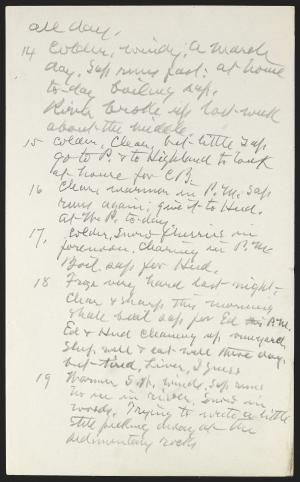 all day.
14 Colder, windy; a March
day. Sap runs fast: at home
to-day boiling sap.
River broke up last week
about the middle.
15 Colder, clear, but little sap
go to P. & to Highland to look
at house for C.B.
16 Clear, warmer in P.M. Sap
runs again; give it to Hud.
At W. P. to-day.
17, Colder, snow flurries in
forenoon. Clearing in P.M.
Boil sap for Hud.
18 Froze very hard last night;
Clear & sharp this morning
Shall boil sap for Ed P.M.
Ed & Hud cleaning up vineyard,
Sleep well & eat well these days,
but tired, Liver, I guess
19 Warmer S.W. winds, Sap runs
Ice in river, Snow in
woods. Trying to write a little
Still pecking away at the
sedimentary rocks